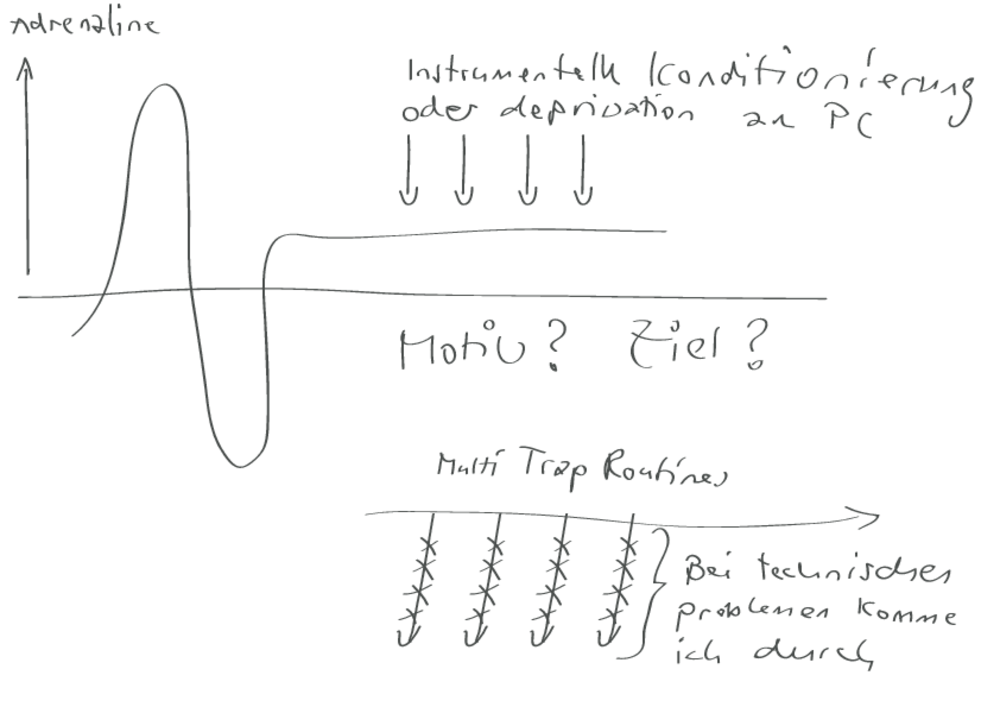 Adrenaline
Instrumentelle Konditionierung
oder deprivation an PC
Motiv? Ziel?
Multi Trap Routines
Bei technischen
problemen komme
ich durch